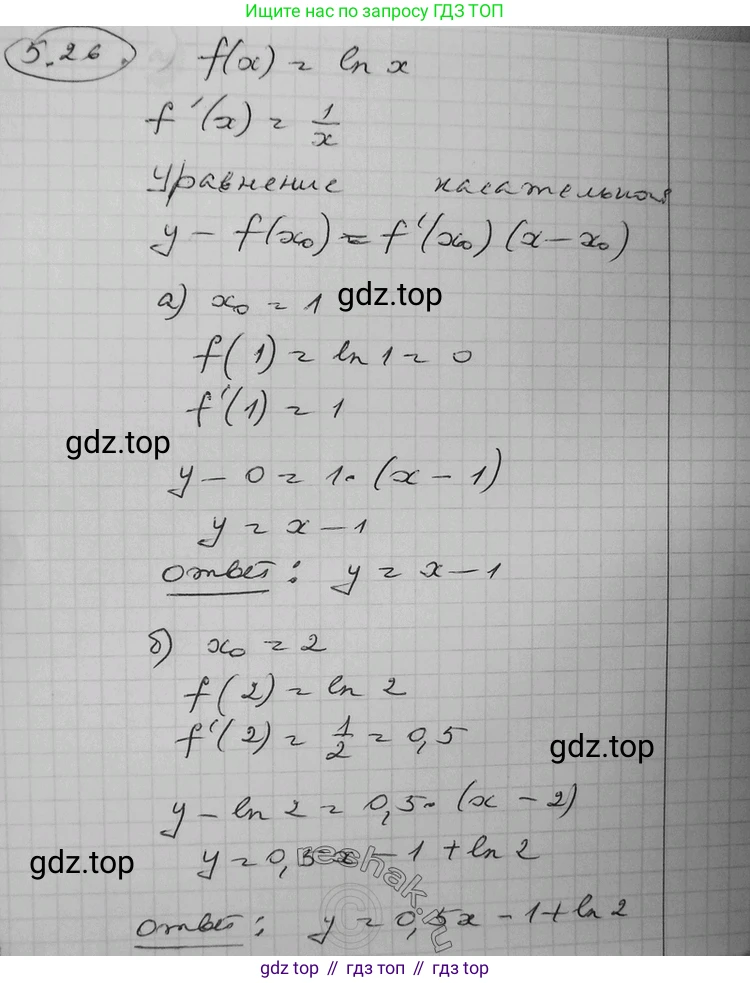 Ищите нас по запросу ГДЗ ТОП
5.26.
f(x) = ln x
f'(x) = 1/x
Уравнение касательной
y - f(x₀) = f'(x₀) (x - x₀)
а) x₀ = 1
gdz.top
f(1) = ln 1 = 0
f'(1) = 1
gdz.top
y - 0 = 1 · (x - 1)
y = x - 1
Ответ: y = x - 1
б) x₀ = 2
f(2) = ln 2
f'(2) = 1/2 = 0,5
gdz.top
y - ln 2 = 0,5 · (x - 2)
y = 0,5x - 1 + ln 2
gdz.top
reshak.ru
©
Ответ: y = 0,5x - 1 + ln 2
gdz top // гдз топ // gdz top